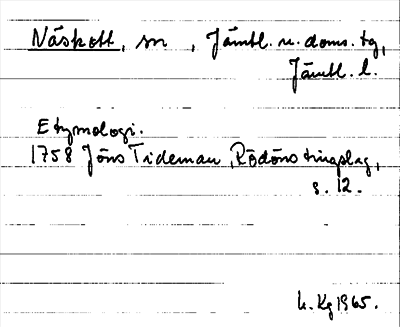 Näskott, sn, Jämtl. n. doms. tg,
Jämtl. l.
Etymologi.
1758 Jöns Tideman, Rödöns tingslag,
s. 12.
H. Kg 1965.